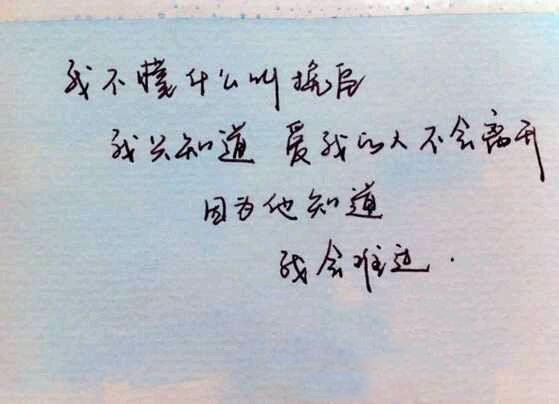 我不懂什么叫挽留
我只知道 爱我的人不会离开
因为他知道
我会难过.